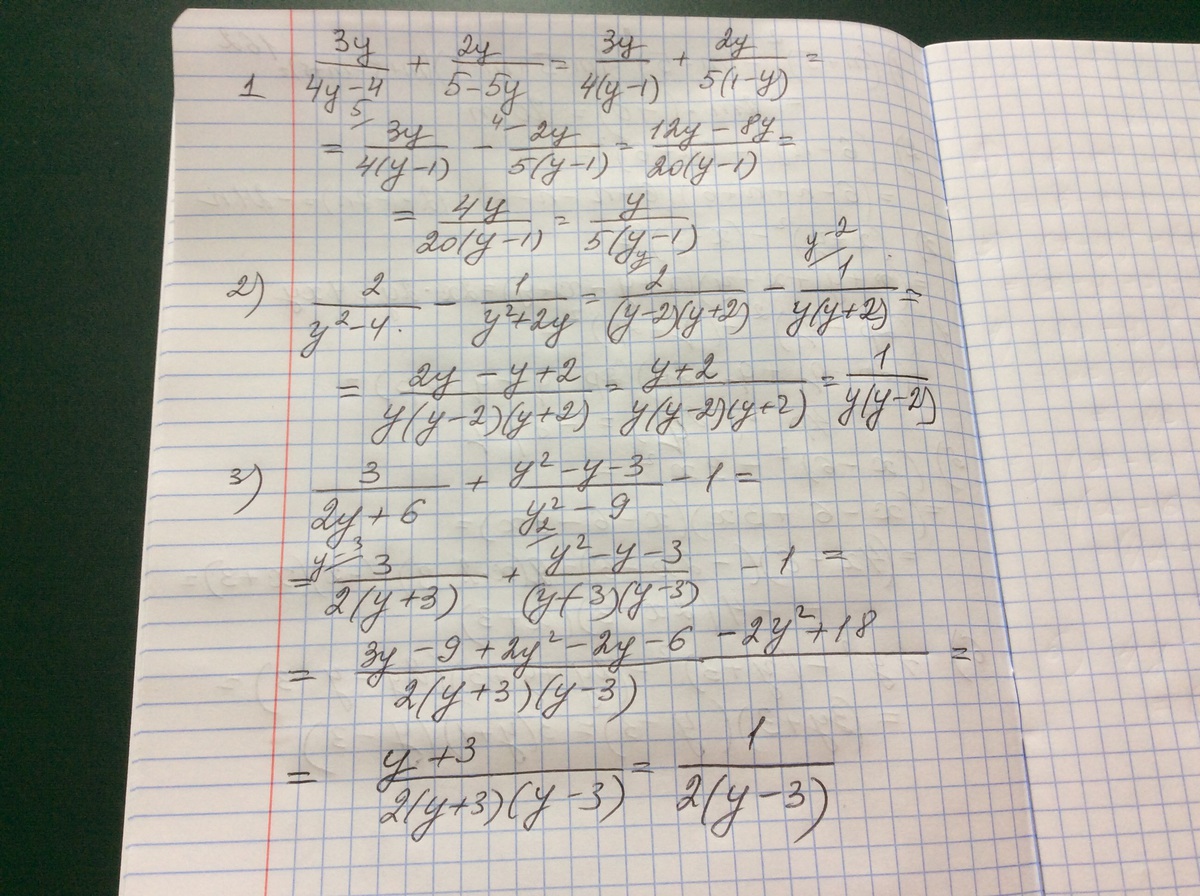 1 3y/(4y-4) + 2y/(5-5y) = 3y/(4(y-1)) + 2y/(5(1-y)) =
= 5/ 3y/(4(y-1)) - 4/ 2y/(5(y-1)) = (12y-8y)/(20(y-1)) =
= 4y/(20(y-1)) = y/(5(y-1))
2) 2/(y²-4) - 1/(y²+2y) = y/ 2/((y-2)(y+2)) - y-2/ 1/(y(y+2)) =
= (2y-y+2)/(y(y-2)(y+2)) = (y+2)/(y(y-2)(y+2)) = 1/(y(y-2))
3) 3/(2y+6) + (y²-y-3)/(y²-9) - 1 =
= y-3/ 3/(2(y+3)) + 2/ (y²-y-3)/((y+3)(y-3)) - 1 =
= (3y-9+2y²-2y-6-2y²+18)/(2(y+3)(y-3)) =
= (y+3)/(2(y+3)(y-3)) = 1/(2(y-3))